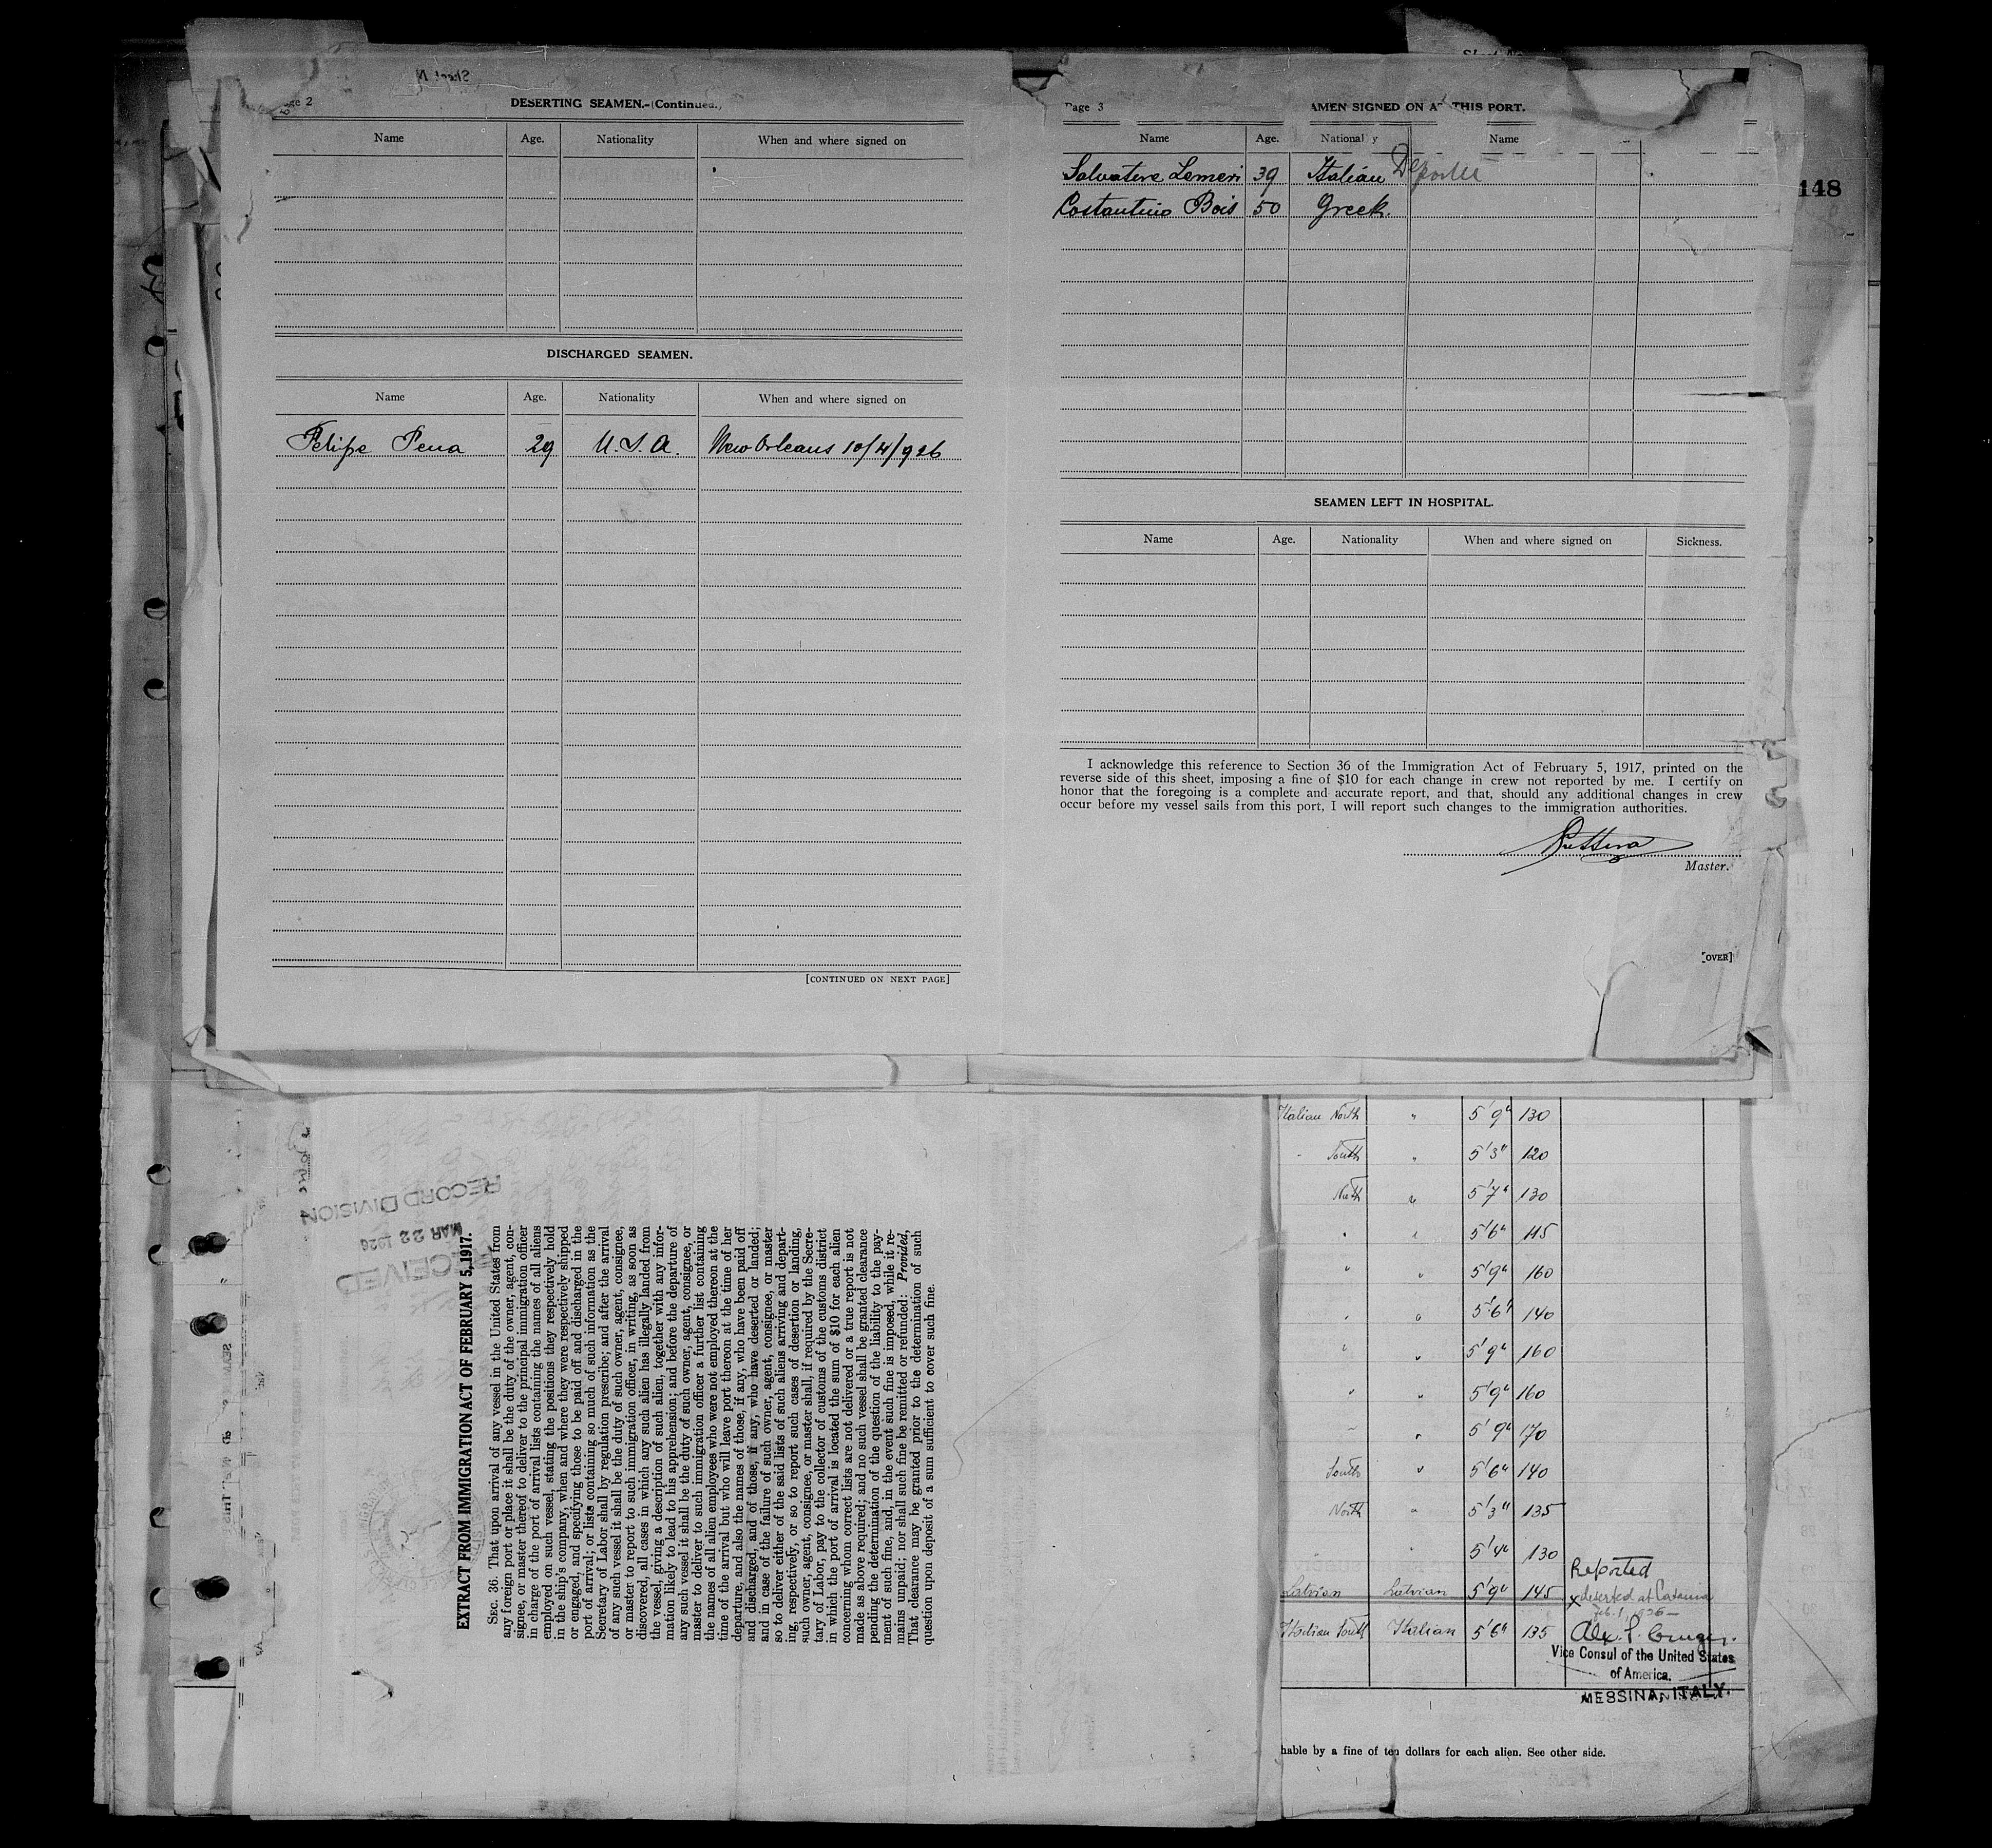 Page 3
DESERTING SEAMEN.-(Continued.)
Name Age. Nationality When and where signed on
DISCHARGED SEAMEN.
Name Age. Nationality When and where signed on
Felipe Pena 29 U.S.A. New Orleans 10/4/926
[CONTINUED ON NEXT PAGE]
AMEN SIGNED ON AT THIS PORT.
Name Age. Nationality Name
Salvatore Lemeri 39 Italian
Costantino Bois 50 Greek.
148
SEAMEN LEFT IN HOSPITAL.
Name Age. Nationality When and where signed on Sickness.
I acknowledge this reference to Section 36 of the Immigration Act of February 5, 1917, printed on the
reverse side of this sheet, imposing a fine of $10 for each change in crew not reported by me. I certify on
honor that the foregoing is a complete and accurate report, and that, should any additional changes in crew
occur before my vessel sails from this port, I will report such changes to the immigration authorities.
Master.
[OVER]
RECORD DIVISION
MAR 22 1926
RECEIVED
EXTRACT FROM IMMIGRATION ACT OF FEBRUARY 5, 1917.
SEC. 36. That upon arrival of any vessel in the United States from
any foreign port or place it shall be the duty of the owner, agent, con-
signee, or master thereof to deliver to the principal immigration officer
in charge of the port of arrival lists containing the names of all aliens
employed on such vessel, stating the positions they respectively hold
in the ship's company, when and where they were respectively shipped
or engaged, and specifying those to be paid off and discharged in the
port of arrival; or lists containing so much of such information as the
Secretary of Labor shall by regulation prescribe; and after the arrival
of any such vessel it shall be the duty of such owner, agent, consignee,
or master to report to such immigration officer, in writing, as soon as
discovered, all cases in which any such alien has illegally landed from
the vessel, giving a description of such alien, together with any infor-
mation likely to lead to his apprehension; and before the departure of
any such vessel it shall be the duty of such owner, agent, consignee, or
master to deliver to such immigration officer a further list containing
the names of all alien employees who were not employed thereon at the
time of the arrival but who will leave port thereon at the time of her
departure, and also the names of those, if any, who have been paid off
and discharged, and of those, if any, who have deserted or landed;
and in case of the failure of such owner, agent, consignee, or master
so to deliver either of the said lists of such aliens arriving and depart-
ing, respectively, or so to report such cases of desertion or landing,
such owner, agent, consignee, or master shall, if required by the Secre-
tary of Labor, pay to the collector of customs of the customs district
in which the port of arrival is located the sum of $10 for each alien
concerning whom correct lists are not delivered or a true report is not
made as above required; and no such vessel shall be granted clearance
pending the determination of the question of the liability to the pay-
ment of such fine, and, in the event such fine is imposed, while it re-
mains unpaid; nor shall such fine be remitted or refunded: Provided,
That clearance may be granted prior to the determination of such
question upon deposit of a sum sufficient to cover such fine.
Italian North " 5'9" 130
" South " 5'3" 120
North " 5'7" 130
" " 5'6" 115
" " 5'9" 160
" " 5'6" 140
" " 5'9" 160
" " 5'9" 160
" " 5'9" 170
South " 5'6" 140
North " 5'3" 135
" 5'4" 130
Reported
Latvian Latvian 5'9" 145 x deserted at Catania
Feb. 1, 1926
Italian South Italian 5'6" 135 Alex. P. Cruger.
Vice Consul of the United States
of America.
MESSINA, ITALY.
hable by a fine of ten dollars for each alien. See other side.